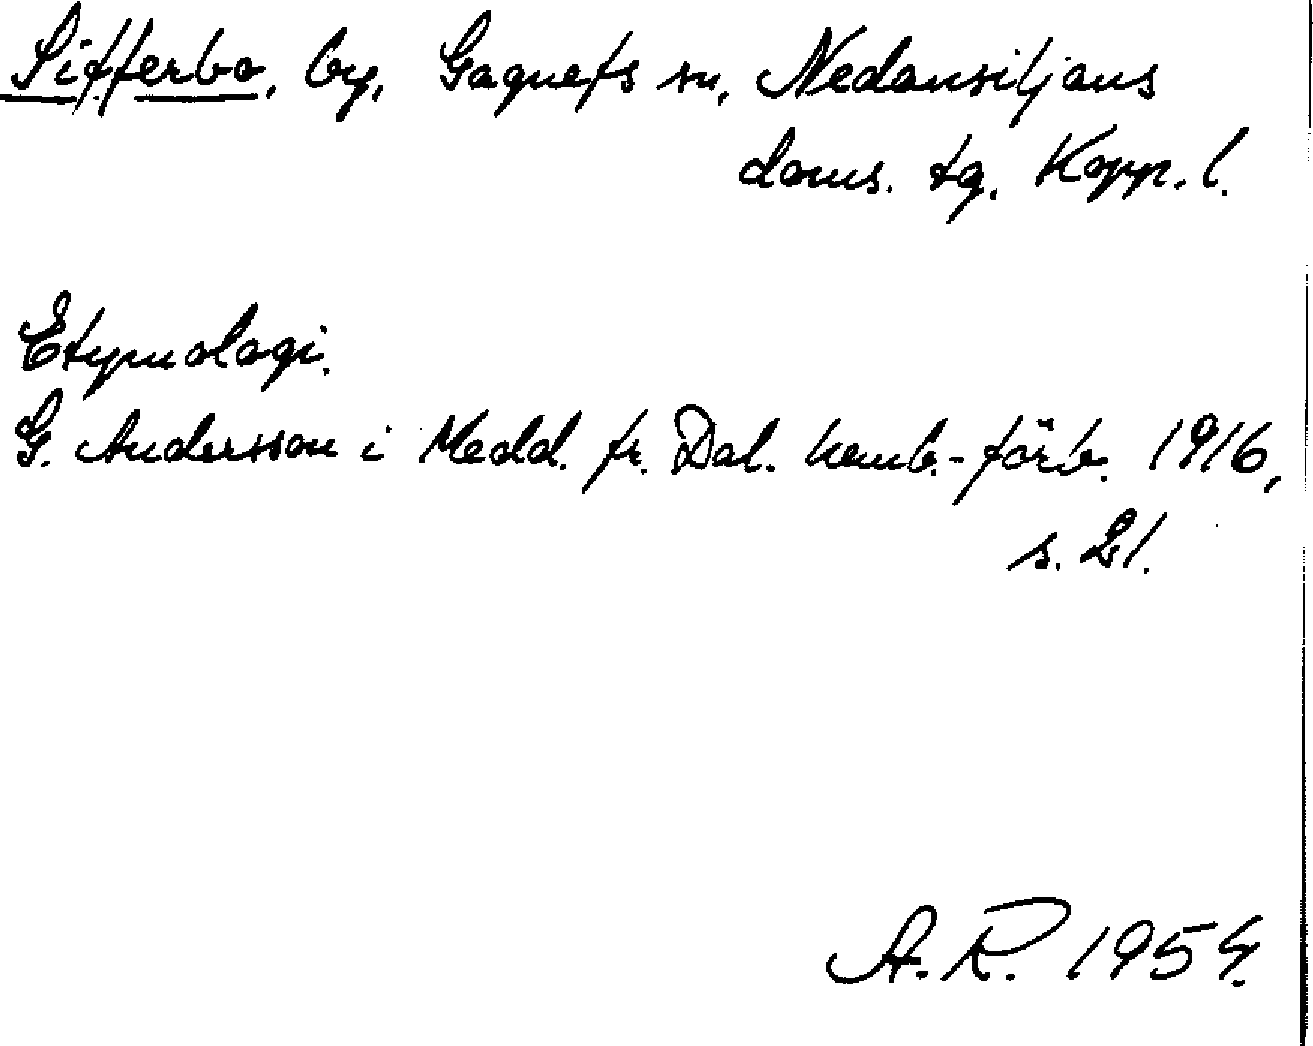 Sifferbo, by, Gagnefs sn, Nedansiljans
doms. tg. Kopp. l.
Etymologi.
G. Andersson i Medd. fr. Dal. hemb.-förb. 1916,
s. 21.
A.R. 1954.